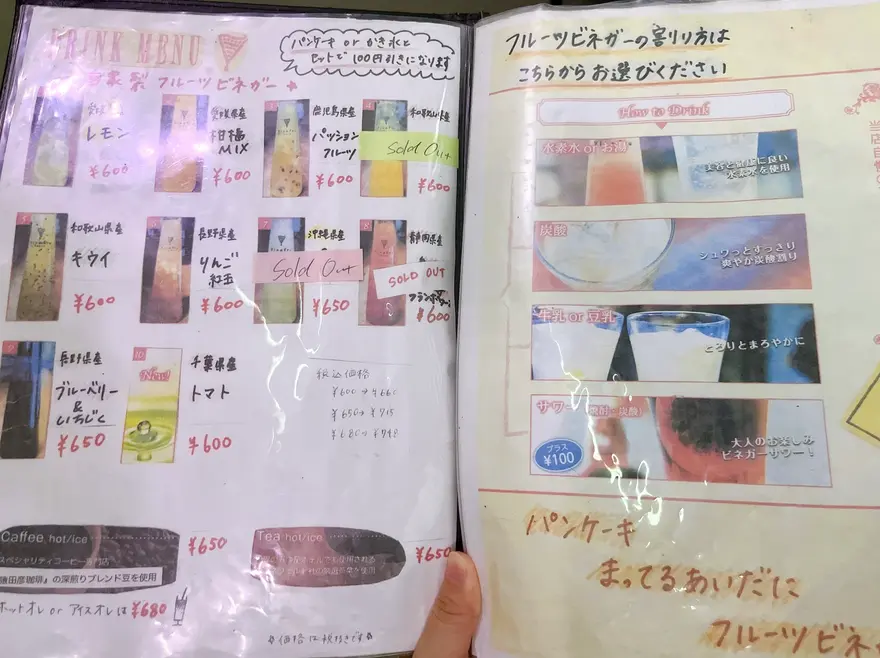 DRINK MENU
パンケーキ or かき氷と
セットで100円引きになります
自家製 フルーツビネガー
レモン
¥600
愛媛県産
柑橘
MIX
¥600
3
鹿児島県産
パッション
フルーツ
¥600
4
和歌山県産
Sold Out
¥600
5
和歌山県産
キウイ
¥600
6
長野県産
りんご
紅玉
¥600
7
沖縄県産
Sold Out
¥650
8
静岡県産
SOLD OUT
¥600
9
長野県産
ブルーベリー
&
いちじく
¥650
10
New!
千葉県産
トマト
¥600
税込価格
¥600→¥660
¥650→¥715
¥680→¥748
Caffee hot/ice
スペシャリティコーヒー専門店
『猿田彦珈琲』の深煎りブレンド豆を使用
¥650
ホットオレ or アイスオレは ¥680
Tea hot/ice
¥650
☆価格は税抜きです☆
フルーツビネガーの割り方は
こちらからお選びください
How to Drink
水素水 or お湯
美容と健康に良い
水素水を使用
炭酸
シュワっとすっきり
爽やか炭酸割り
牛乳 or 豆乳
とろりとまろやかに
サワー(焼酎・炭酸)
プラス
¥100
大人のお楽しみ
ビネガーサワー!
パンケーキ
まってるあいだに
フルーツビネ